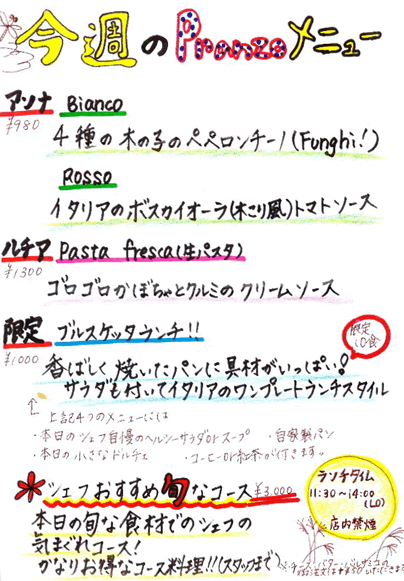 今週のPranzoメニュー
アンナ Bianco
¥980
4種の木の子のペペロンチーノ(Funghi!)
Rosso
イタリアのボスカイオーラ(木こり風)トマトソース
ルチア Pasta fresca(生パスタ)
¥1300
ゴロゴロかぼちゃとクルミのクリームソース
限定 ブルスケッタランチ!!
¥1000
限定10食
香ばしく焼いたパンに具材がいっぱい!
サラダも付いてイタリアのワンプレートランチスタイル
上記4つのメニューには
・本日のシェフ自慢のヘルシーサラダorスープ ・自家製パン
・本日の小さなドルチェ ・コーヒーor紅茶が付きます
シェフおすすめ旬なコース ¥3,000
本日の旬な食材でのシェフの
気まぐれコース!
かなりお得なコース料理!!(スタッフまで)
ランチタイム
11:30〜14:00
(LO)
店内禁煙